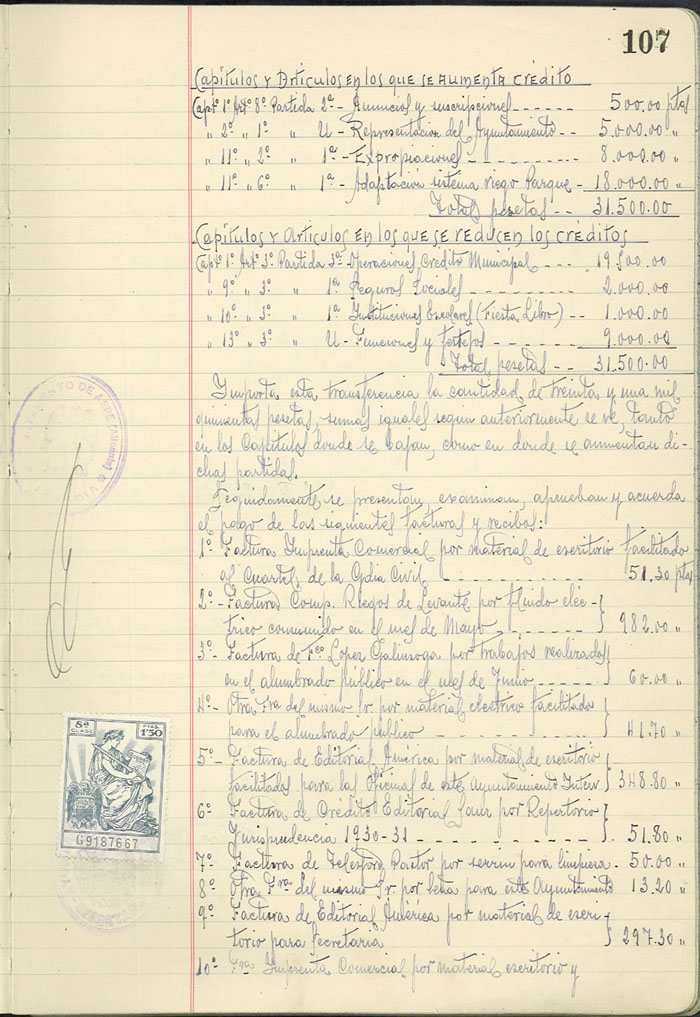 107
Capítulos y Artículos en los que se aumenta crédito
Captº 1º Artº 8º Partida 2ª - Anuncios y suscripciones ------ 500.00 ptas
" 2º " 1º " U - Representación del Ayuntamiento -- 5.000.00 "
" 11º " 2º " 1ª - Expropiaciones - -------- 8.000.00 "
" 11º " 6º " 1ª - Adaptación sistema riego Parque - 18.000.00 "
Total pesetas -- 31.500.00
Capítulos y Artículos en los que se reducen los créditos
Captº 1º Artº 3º Partida 3ª - Operaciones Crédito Municipal ---- 19.500.00
" 9º " 3º " 1ª Seguros Sociales -------- 2.000.00
" 10º " 3º " 1ª Instituciones Escolares (Fiesta Libro) -- 1.000.00
" 13º " 3º " U - Funciones y festejos ---- 9.000.00
Total pesetas -- 31.500.00
Importa esta transferencia la cantidad de treinta y una mil
quinientas pesetas, sumas iguales según anteriormente se ve, tanto
en los Capítulos donde se bajan, como en donde se aumentan di-
chas partidas.
Seguidamente se presentan, examinan, aprueban y acuerda
el pago de las siguientes facturas y recibos:
1º Factura Imprenta Comercial por material de escritorio facilitado
al Cuartel de la Gdia Civil - - - - - - - - 51.30 ptas
2º - Factura Comp. Riegos de Levante por fluido eléc-
trico consumido en el mes de Mayo - - - - - } 982.00 "
3º - Factura de Fco Lopez Galinsoga por trabajos realizados
en el alumbrado público en el mes de Junio - - - } 60.00 "
4º - Otra Fra del mismo Sr. por material electrico facilitado
para el alumbrado público - - - - - - - - } 41.70 "
5º - Factura de Editorial América por material de escritorio
facilitados para las Oficinas de este Ayuntamiento Interv } 348.80 "
6º Factura de Crédito Editorial por Repertorio
Jurisprudencia 1930-31 - - - - - - - - } 51.80 "
7º Factura de Telesforo Pastor por serrín para limpieza - 50.00 "
8º Otra Fra del mismo Sr. por leña para este Ayuntamiento 13.20 "
9º Factura de Editorial América por material de escri-
torio para Secretaria } 297.30 "
10º Fra Imprenta Comercial por material escritorio y
AYUNTAMIENTO DE ASPE (Alicante)
8ª CLASE PTAS. 1'50
G9187667